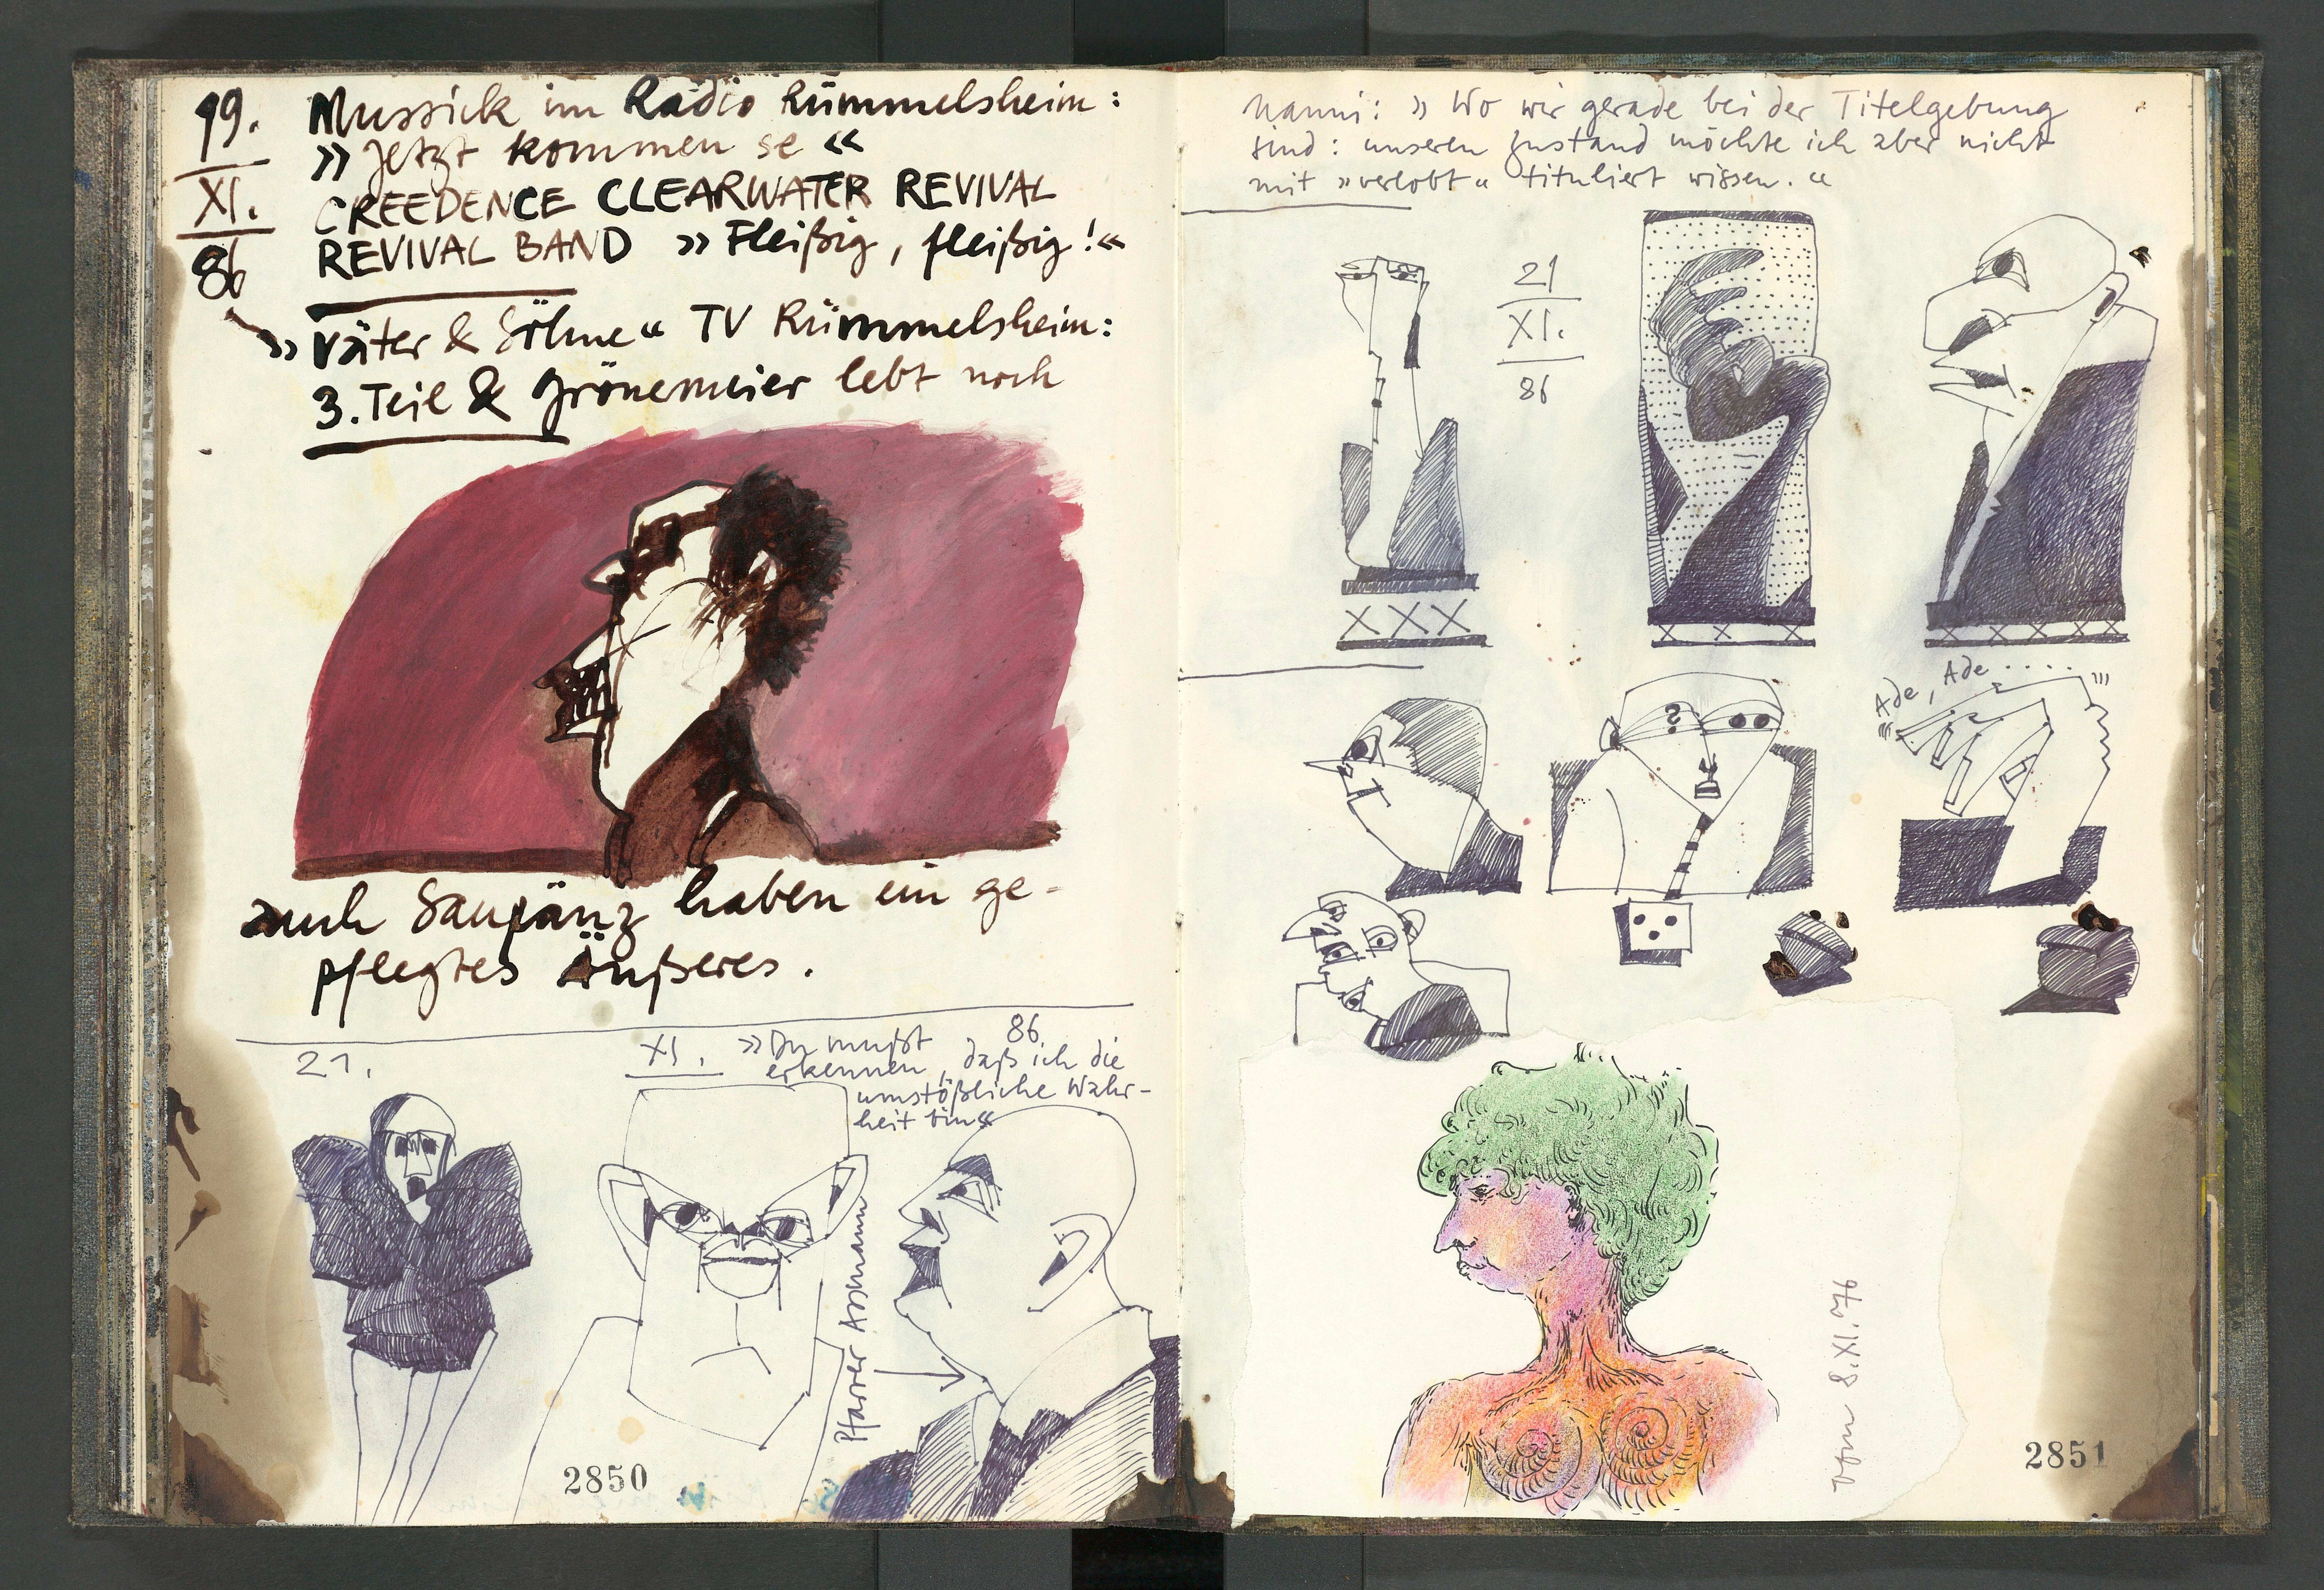 19.
XI.
86
Mussick im Radio Rümmelsheim:
»Jetzt kommen se«
CREEDENCE CLEARWATER REVIVAL
REVIVAL BAND »Fleißig, fleißig!«
»Väter & Söhne« TV Rümmelsheim:
3. Teil & Grönemeier lebt noch
auch Saupänz haben ein ge-
pflegtes Äußeres.
21. XI. 86
»Du mußt
erkennen, daß ich die
umstößliche Wahr-
heit bin«
Pfarrer Assmann
2850
Nanni: »Wo wir gerade bei der Titelgebung
sind: unseren Zustand möchte ich aber nicht
mit »verlobt« tituliert wissen.«
21
XI.
86
XXX
X X X
X X X X X
?
Ade, Ade.....
vom 8.XI.76
2851